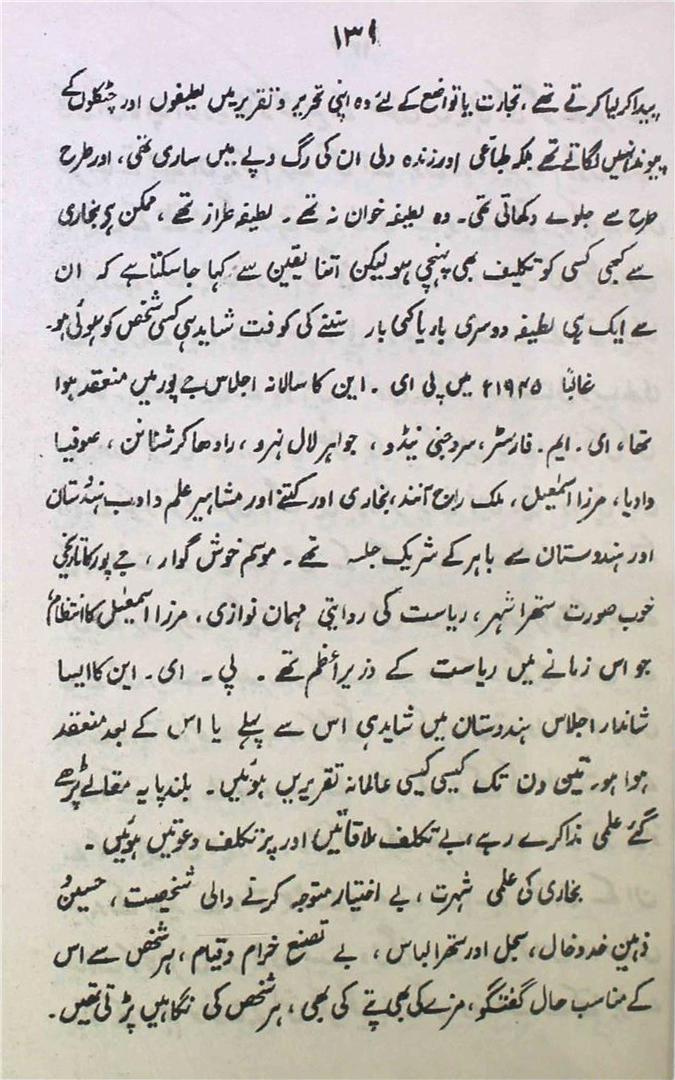 ۱۳۹
پیدا کر لیا کرتے تھے، تجارت یا تواضع کے لئے وہ اپنی تحریر و تقریر میں لطیفوں اور چٹکلوں کے
پیوند نہیں لگاتے تھے بلکہ طباعی اور زندہ دلی ان کی رگ و پے میں ساری تھی، اور طرح
طرح سے جلوے دکھاتی تھی۔ وہ لطیفہ خوان نہ تھے۔ لطیفہ طراز تھے، ممکن ہے بخاری
سے کبھی کسی کو تکلیف بھی پہنچی ہو لیکن اتنا یقین سے کہا جا سکتا ہے کہ ان
سے ایک ہی لطیفہ دوسری بار یا کئی بار سننے کی کوفت شاید ہی کسی شخص کو ہوئی ہو۔
غالباً ۱۹۴۵ء میں پی ای۔ این کا سالانہ اجلاس جے پور میں منعقد ہوا
تھا، ای۔ ایم۔ فارسٹر، سروجنی نیڈو، جواہر لال نہرو، رادھا کرشنانن، صوفیا
وادیا، مرزا اسمٰعیل، ملک راج آنند، بخاری اور کتنے اور مشاہیر علم و ادب ہندوستان
اور ہندوستان سے باہر کے شریک جلسہ تھے۔ موسم خوش گوار، جے پور کا تاریخی
خوب صورت ستھرا شہر، ریاست کی روایتی مہمان نوازی، مرزا اسمٰعیل کا انتظام
جو اس زمانے میں ریاست کے وزیر اعظم تھے۔ پی۔ ای۔ این کا ایسا
شاندار اجلاس ہندوستان میں شاید ہی اس سے پہلے یا اس کے بعد منعقد
ہوا ہو۔ تین دن تک کیسی کیسی عالمانہ تقریریں ہوئیں۔ بلند پایہ مقالے پڑھے
گئے علمی مذاکرے رہے، بے تکلف ملاقاتیں اور پر تکلف دعوتیں ہوئیں۔
بخاری کی علمی شہرت، بے اختیار متوجہ کرنے والی شخصیت، حسین و
ذہین خد و خال، سجل اور ستھرا لباس، بے تصنع خرام و قیام، ہر شخص سے اس
کے مناسب حال گفتگو، مزے کی بھی پتے کی بھی، ہر شخص کی نگاہیں پڑتی تھیں۔